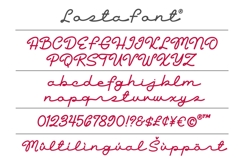 Lastafont®
ABCDEFGHIJKLMNO
PQRSTUVWXYZ
abcdefghijklm
nopqrstuvwxyz
01234567890!?&$£¥€©®™
Múltilingüal Šüppört